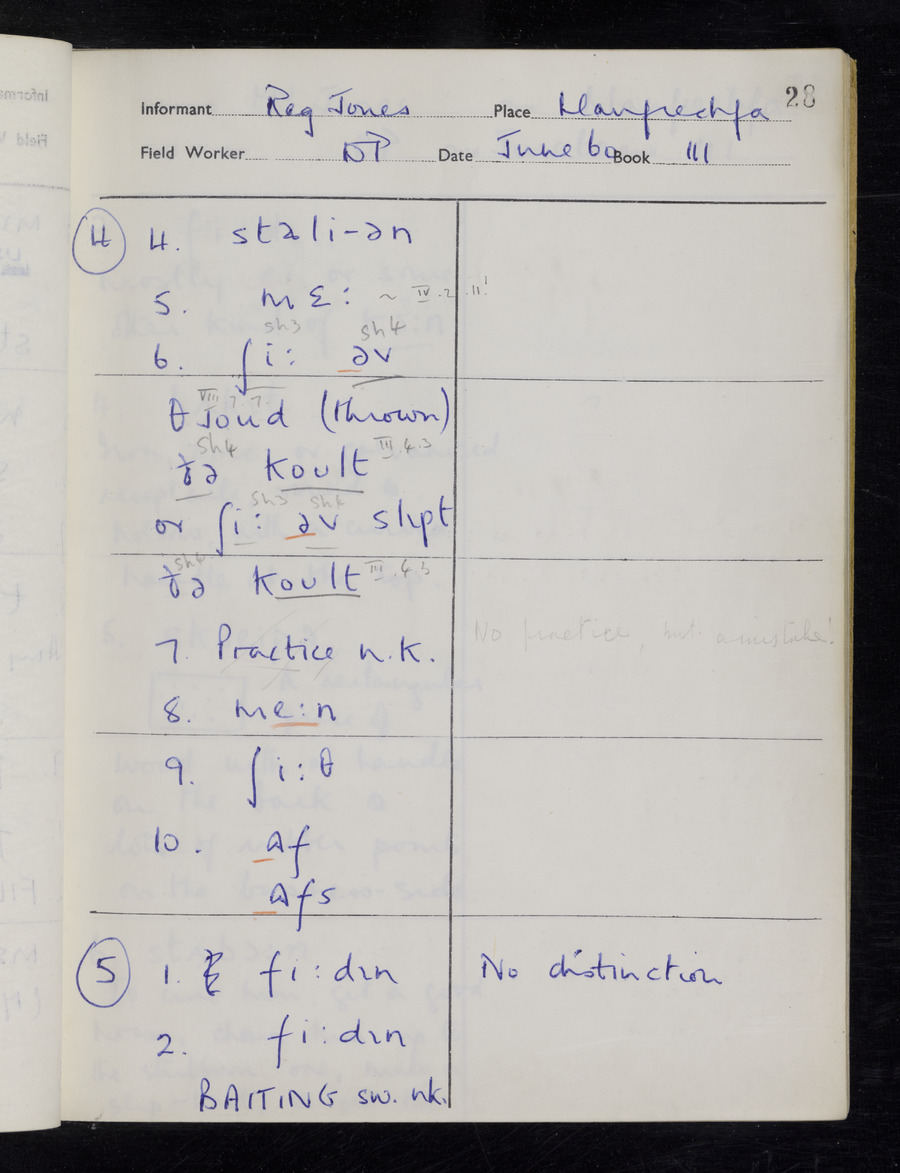 28
Informant Reg Jones Place Llanfrechfa
Field Worker DP Date June 60 Book III
4 4. stali-ən
5. mɛ: ~ IV.2.11!
sh3 sh4
6. ʃi: əv
VIII.7.7.
θɹoud (thrown)
sh4 III.4.3
ðə koult
sh3 sh4
or ʃi: əv slɪpt
sh4
ðə koult III.4.3
7. Practice n.k. No practice, but a mistake!
8. me:n
9. ʃi:θ
10. af
afs
5 1. fi:dɪn No distinction
2. fi:dɪn
BAITING sw. nk.